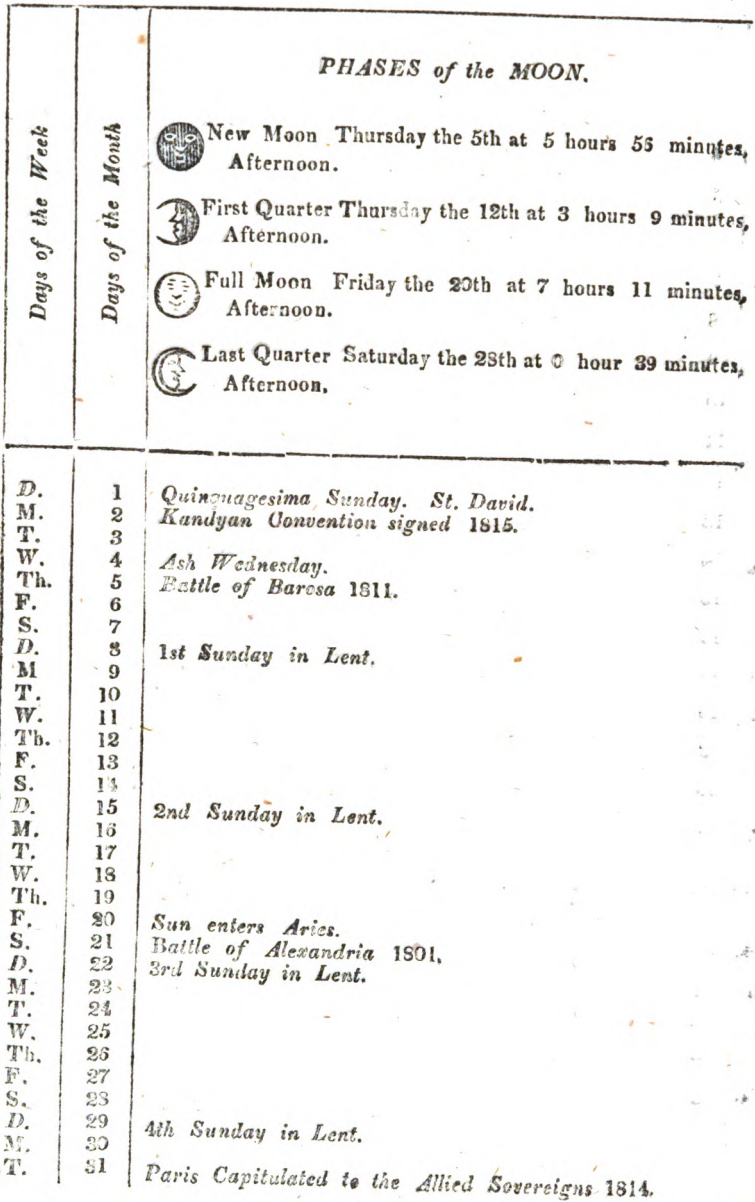 PHASES of the MOON.
Days of the Week
Days of the Month
New Moon Thursday the 5th at 5 hours 55 minutes,
Afternoon.
First Quarter Thursday the 12th at 3 hours 9 minutes,
Afternoon.
Full Moon Friday the 20th at 7 hours 11 minutes,
Afternoon.
Last Quarter Saturday the 28th at 0 hour 39 minutes,
Afternoon,
D. 1 Quinquagesima Sunday. St. David.
M. 2 Kandyan Convention signed 1815.
T. 3
W. 4 Ash Wednesday.
Th. 5 Battle of Barosa 1811.
F. 6
S. 7
D. 8 1st Sunday in Lent.
M 9
T. 10
W. 11
Th. 12
F. 13
S. 14
D. 15 2nd Sunday in Lent.
M. 16
T. 17
W. 18
Th. 19
F. 20 Sun enters Aries.
S. 21 Battle of Alexandria 1801,
D. 22 3rd Sunday in Lent.
M. 23
T. 24
W. 25
Th. 26
F. 27
S. 28
D. 29 4th Sunday in Lent.
M. 30
T. 31 Paris Capitulated to the Allied Sovereigns 1814.